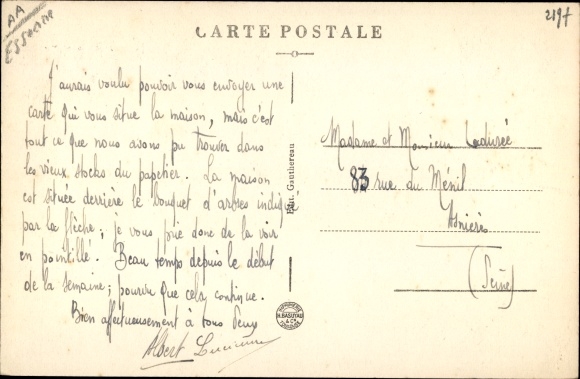 AA
ESSONNE
219t
CARTE POSTALE
J'aurais voulu pouvoir vous envoyer une
carte qui vous situe la maison, mais c'est
tout ce que nous avons pu trouver dans
les vieux stocks du papetier. La maison
est située derrière le bouquet d'arbres indiqué
par la flèche; je vous prie donc de la voir
en pointillé. Beau temps depuis le début
de la semaine; pourvu que cela continue.
Bien affectueusement à tous deux
Albert Lucienne
Edit. Gauthereau
Madame et Monsieur Ladurée
83 rue du Ménil
Asnières
(Seine)